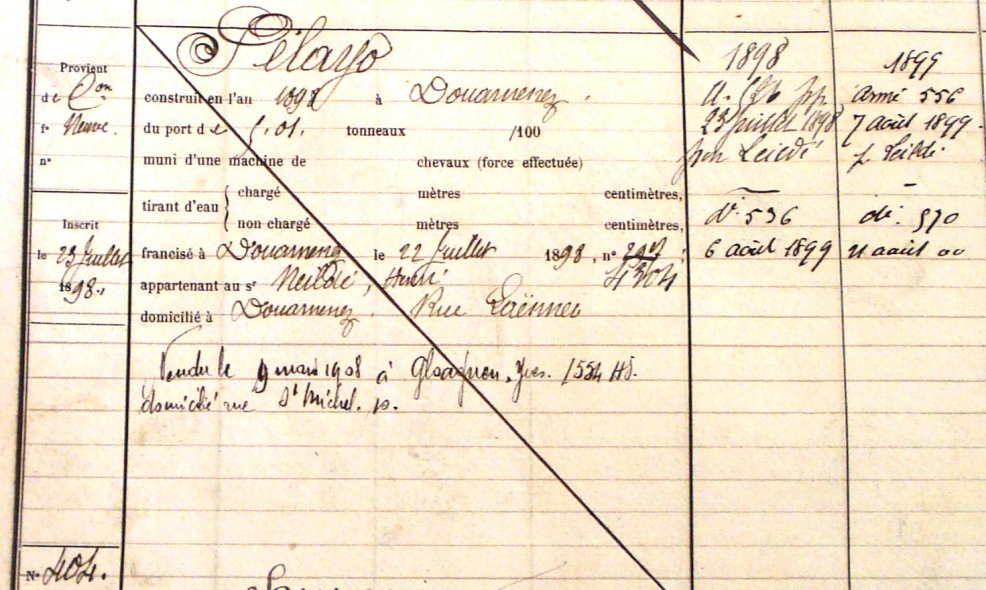 Pélayo
Provient
de Con
fe Neuve.
n°
construit en l'an 1898 à Douarnenez.
du port de tonneaux /100
muni d'une machine de chevaux (force effectuée)
tirant d'eau
chargé mètres centimètres,
non chargé mètres centimètres,
Inscrit
le 23 Juillet
1898.
francisé à Douarnenez le 22 Juillet 1898, n°
4304
appartenant au sr
domicilié à Douarnenez. Rue Laënnec
Vendu le 9 mars 1908 à Yves. 1554
domicilié rue St Michel.
N° 404.
1898
23 Juillet 1898
d. 536
6 août 1899
1899
armé 556
7 août 1899
dé. 570
21 août 00